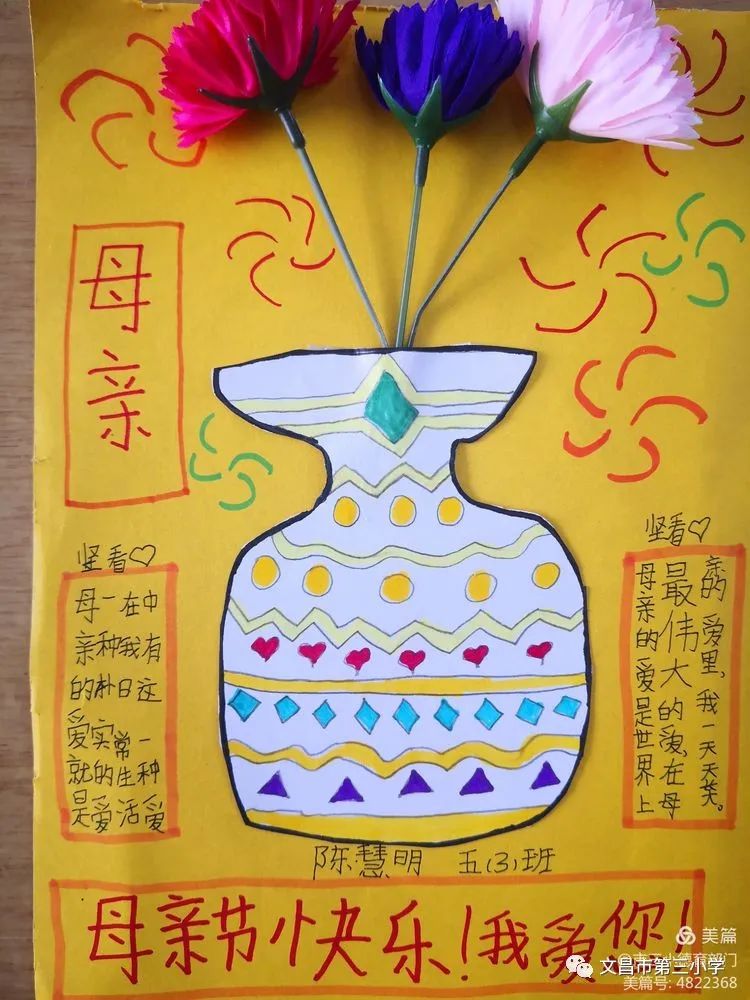 母亲
竖看♡
母亲的爱就是
一种朴实的爱
在我日常生活
中有这一种爱
竖看♡
母亲的爱是世界上
最伟大的爱,在母
亲的爱里,我一天天笑。
陈慧明 五(3)班
母亲节快乐!我爱你!
美篇
文昌市第三小学
美篇号: 4822368